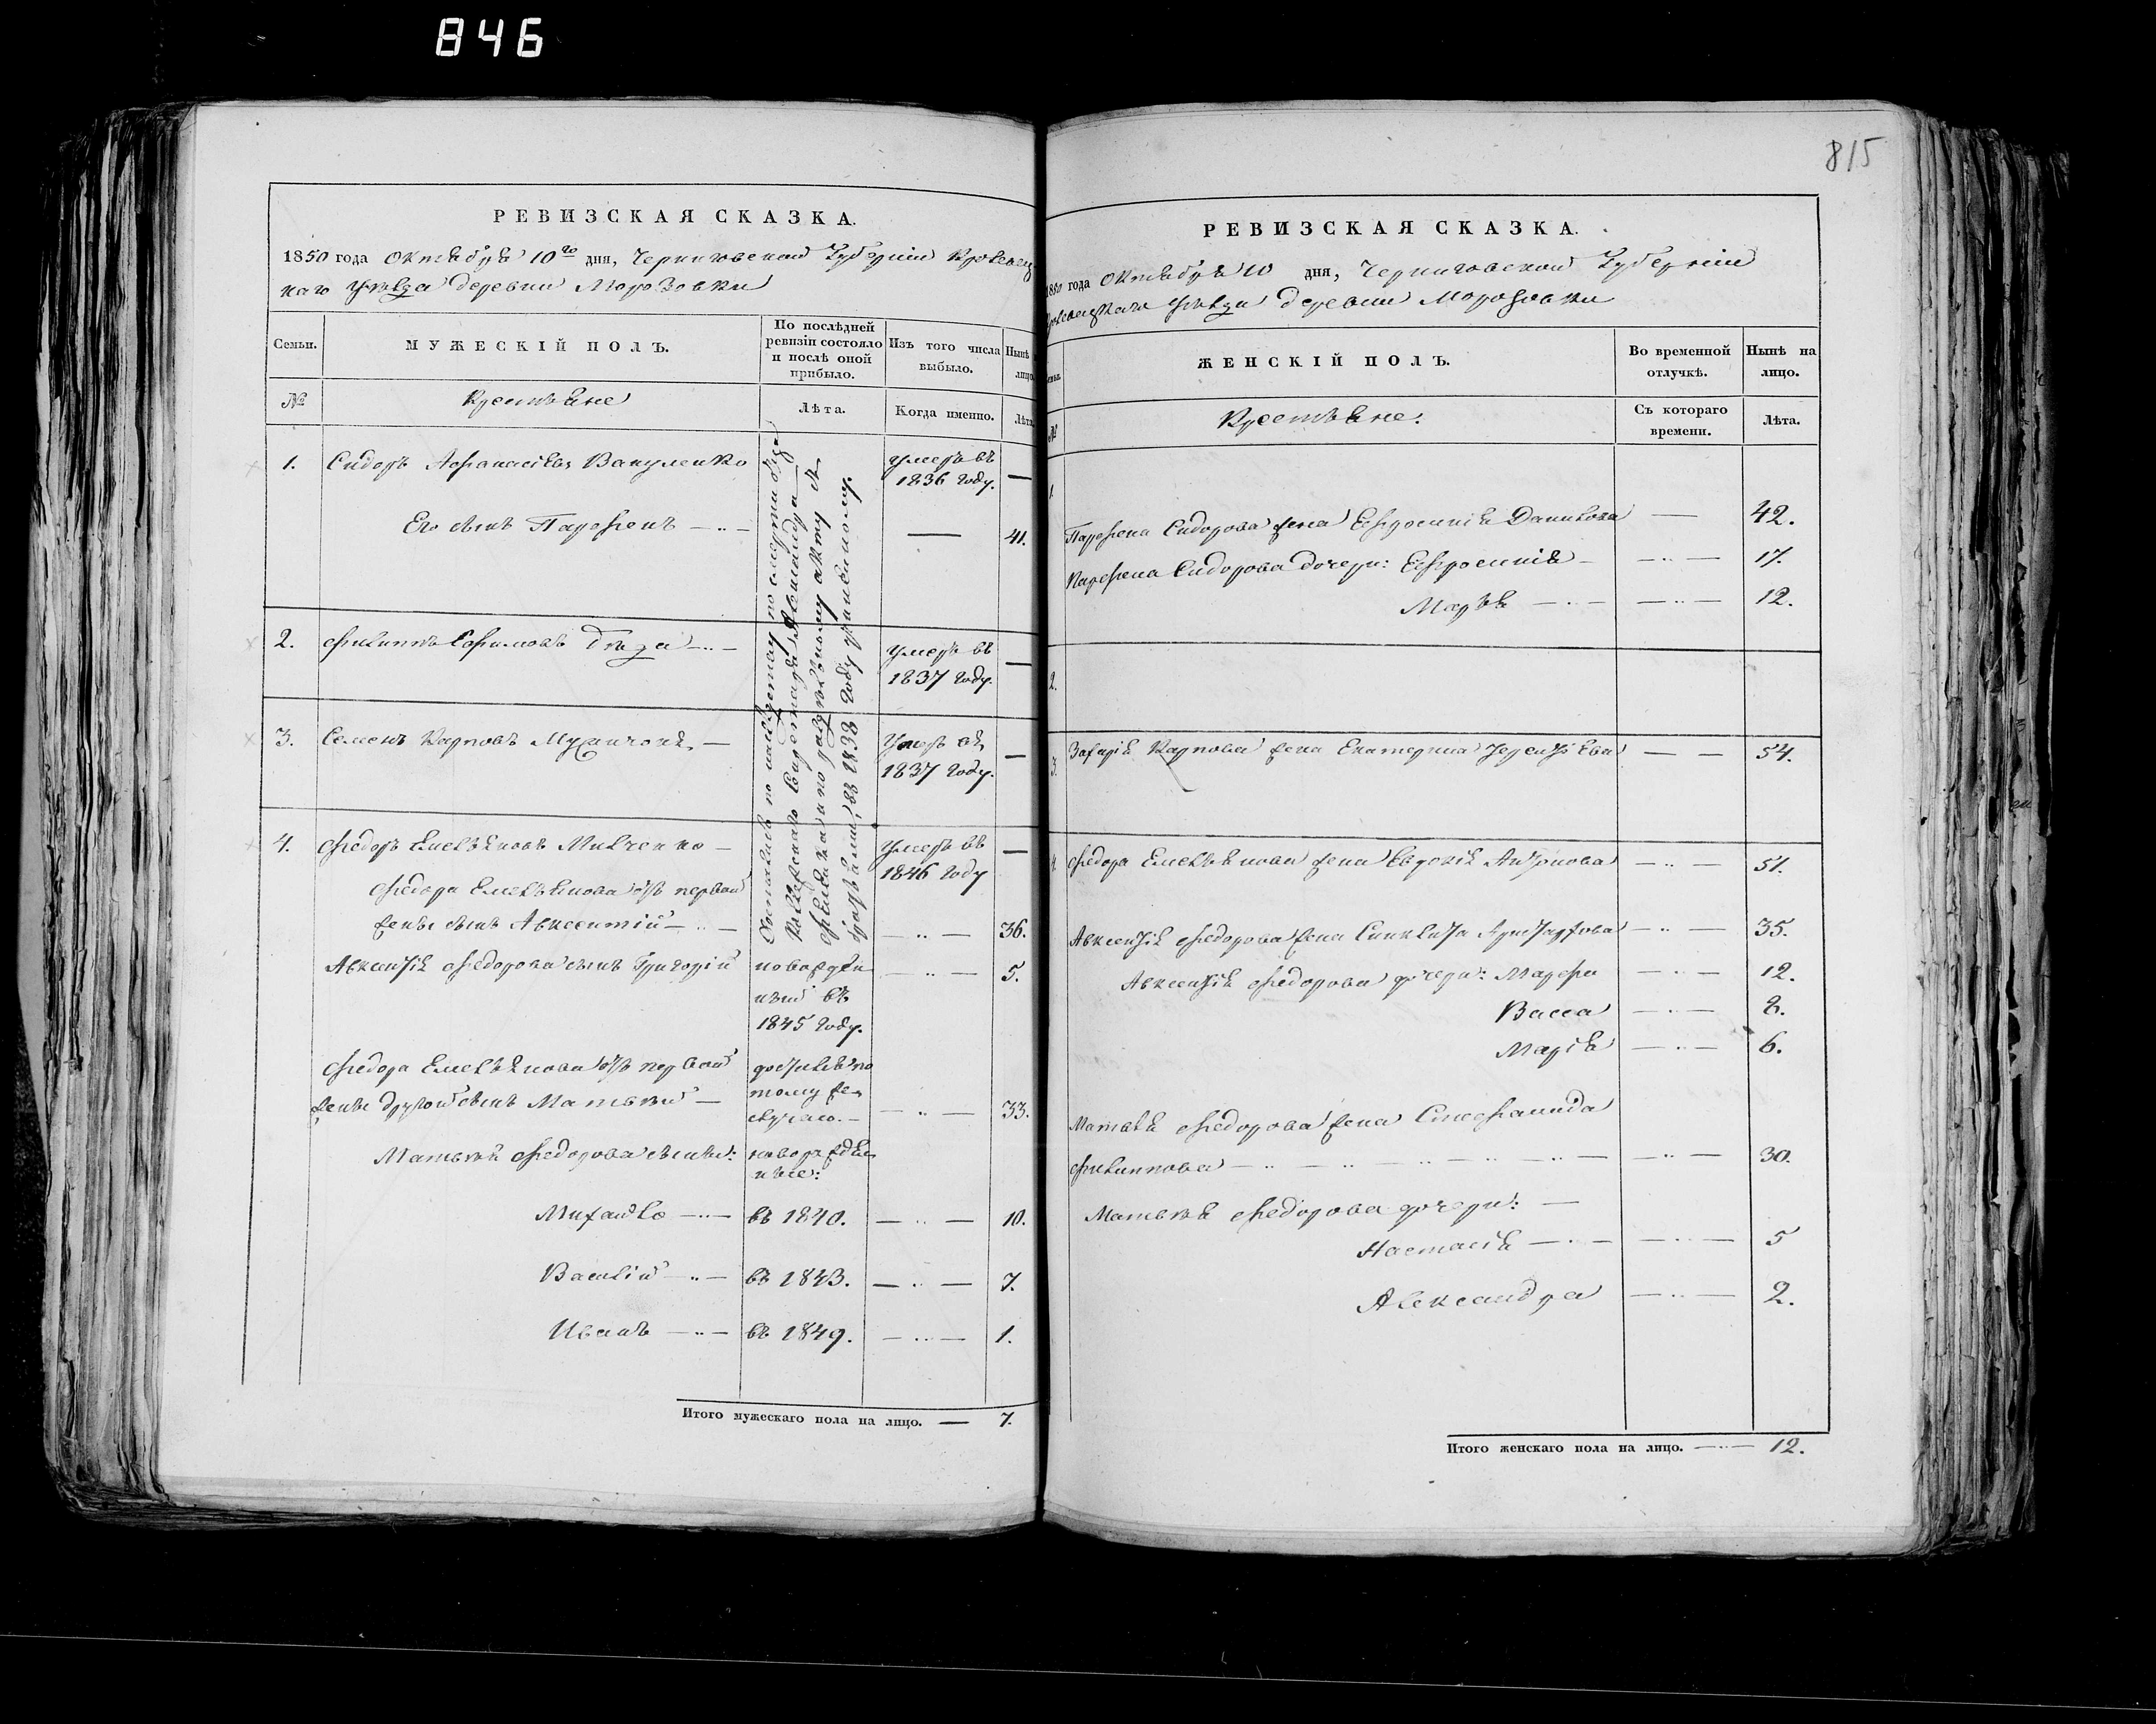 846
815
РЕВИЗСКАЯ СКАЗКА.
1850 года Октября 10го дня, Черниговской Губернии Кролевец
каго Уѣзда деревни Морозовки
Семьи.
МУЖЕСКІЙ ПОЛЪ.
По послѣдней
ревизіи состояло
и послѣ оной
прибыло.
Изъ того числа
выбыло.
Нынѣ
лицо
№
Крестьяне
Лѣта.
Когда именно.
Лѣта.
1. Сидоръ Афанасіевъ Вакуленко
умеръ въ
1836 году. —
Его сынъ Парфенъ — „ — — 41.
2. Филиппъ Ефимовъ — „ —
умеръ въ
1837 году. —
3. Семенъ Карповъ —
Умеръ въ
1837 году. —
4. Федоръ Емельяновъ Милченко —
умеръ въ
1846 году —
Федора Емельянова отъ первой
жены сынъ Авксентій — „ — — „ — 36.
Авксентія Федорова сынъ Григорій
новорожден
ный въ
1845 году. — „ — 5.
Федора Емельянова отъ первой
жены другой сынъ Матвѣй —
достался по
тому же
случаю. — — „ — 33.
Матвѣя Федорова сыны:
новорожден
ные:
Михайло — „ — въ 1840. — „ — 10.
Василій — „ — въ 1843. — „ — 7.
Иванъ — „ — въ 1849. — „ — 1.
Итого мужескаго пола на лицо. — 7.
Достались по наслѣдству по смерти
въ 1838 году
РЕВИЗСКАЯ СКАЗКА.
1850 года Октября 10 дня, Черниговской Губерніи
Кролевецкаго Уѣзда деревни Морозовки
ЖЕНСКІЙ ПОЛЪ.
Во временной
отлучкѣ.
Нынѣ на
лицо.
№
Крестьяне.
Съ котораго
времени.
Лѣта.
1.
Парфена Сидорова жена Ефросинія Данилова — 42.
Парфена Сидорова дочери: Ефросинія — — „ — 17.
Марья — „ — — „ — 12.
2.
3. Захарія Карпова жена Екатерина Терентіева — — 54.
4. Федора Емельянова жена Евдокія Антонова — „ — 51.
Авксентія Федорова жена Синклита — „ — 35.
Авксентія Федорова дочери: Марфа — „ — 12.
Васса — „ — 8.
Марія — „ — 6.
Матвѣя Федорова жена Стефанида
Филиппова — „ — „ — „ — „ — — „ — 30.
Матвѣя Федорова дочери: —
Настасія — „ — — „ — 5
Александра — „ — 2.
Итого женскаго пола на лицо. — „ — 12.